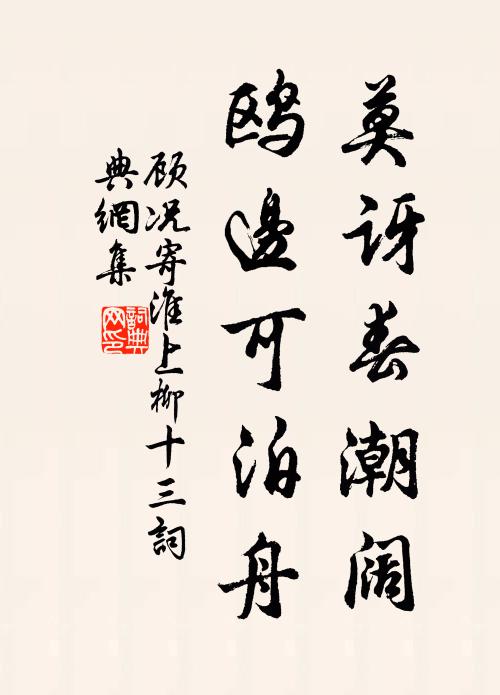 莫讶春潮阔
鸥边可泊舟
顾况寄淮上柳十三詞
典網集
詞典
网印